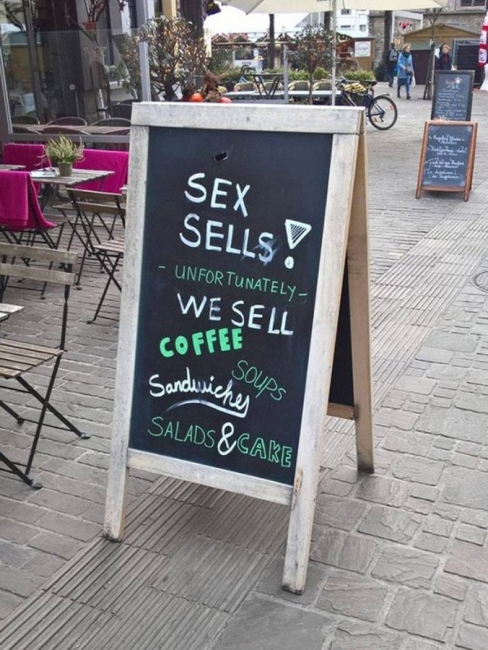 SEX
SELLS!
- UNFORTUNATELY -
WE SELL
COFFEE
SOUPS
Sandwiches
SALADS & CAKE